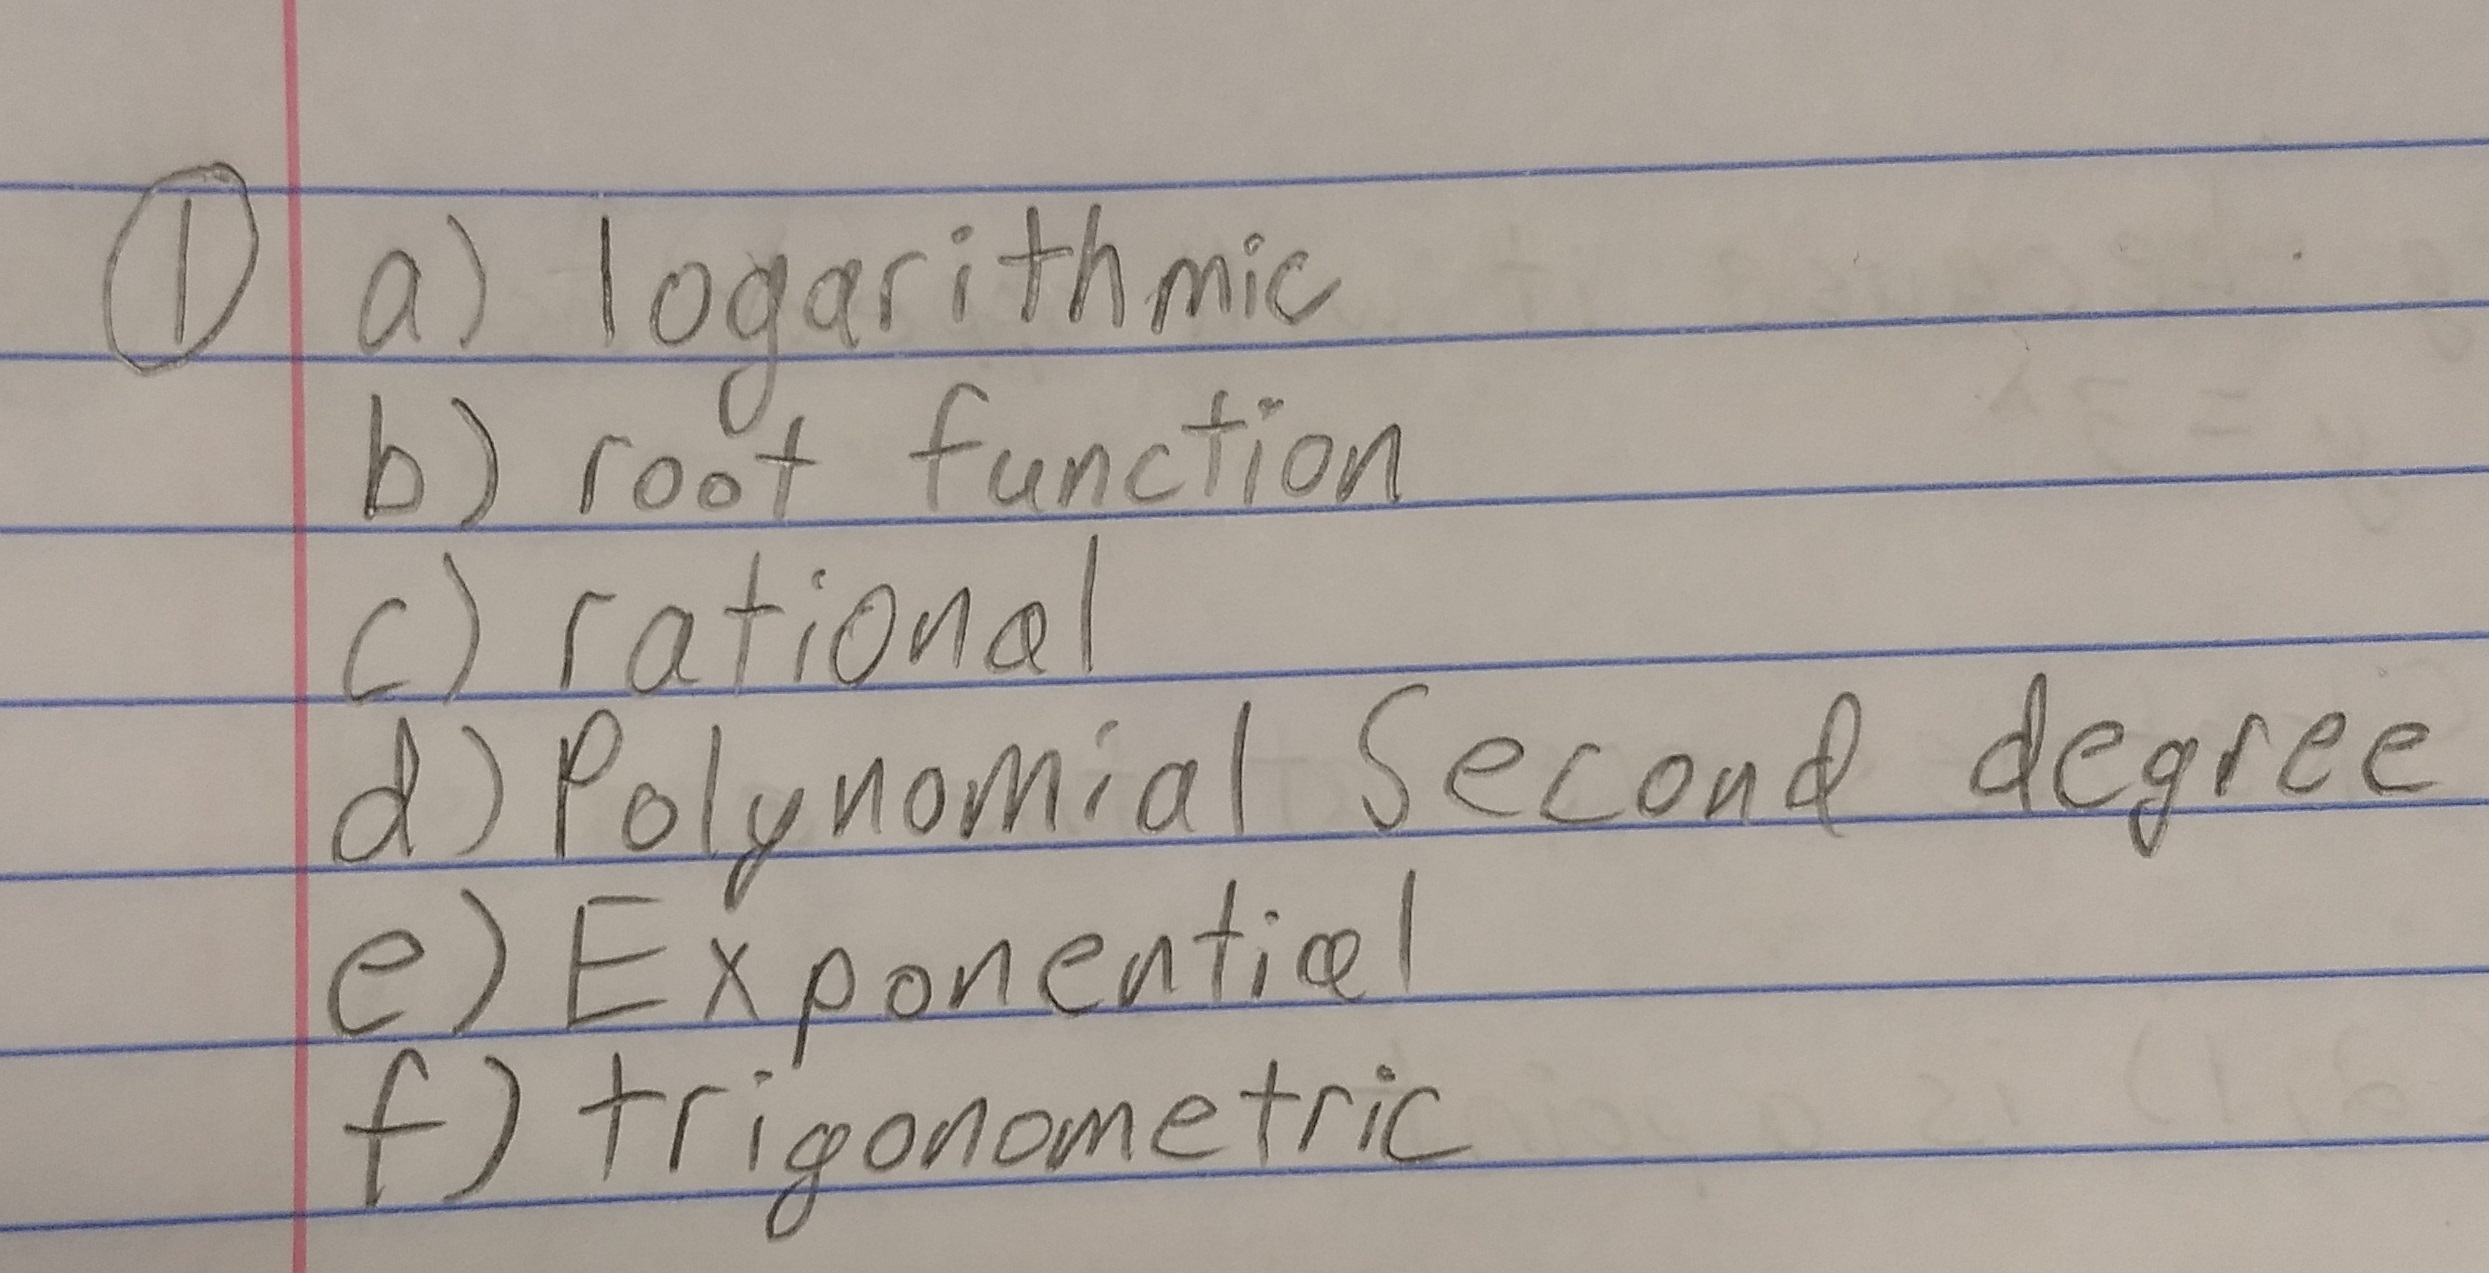 ① a) logarithmic
b) root function
c) rational
d) Polynomial Second degree
e) Exponential
f) trigonometric